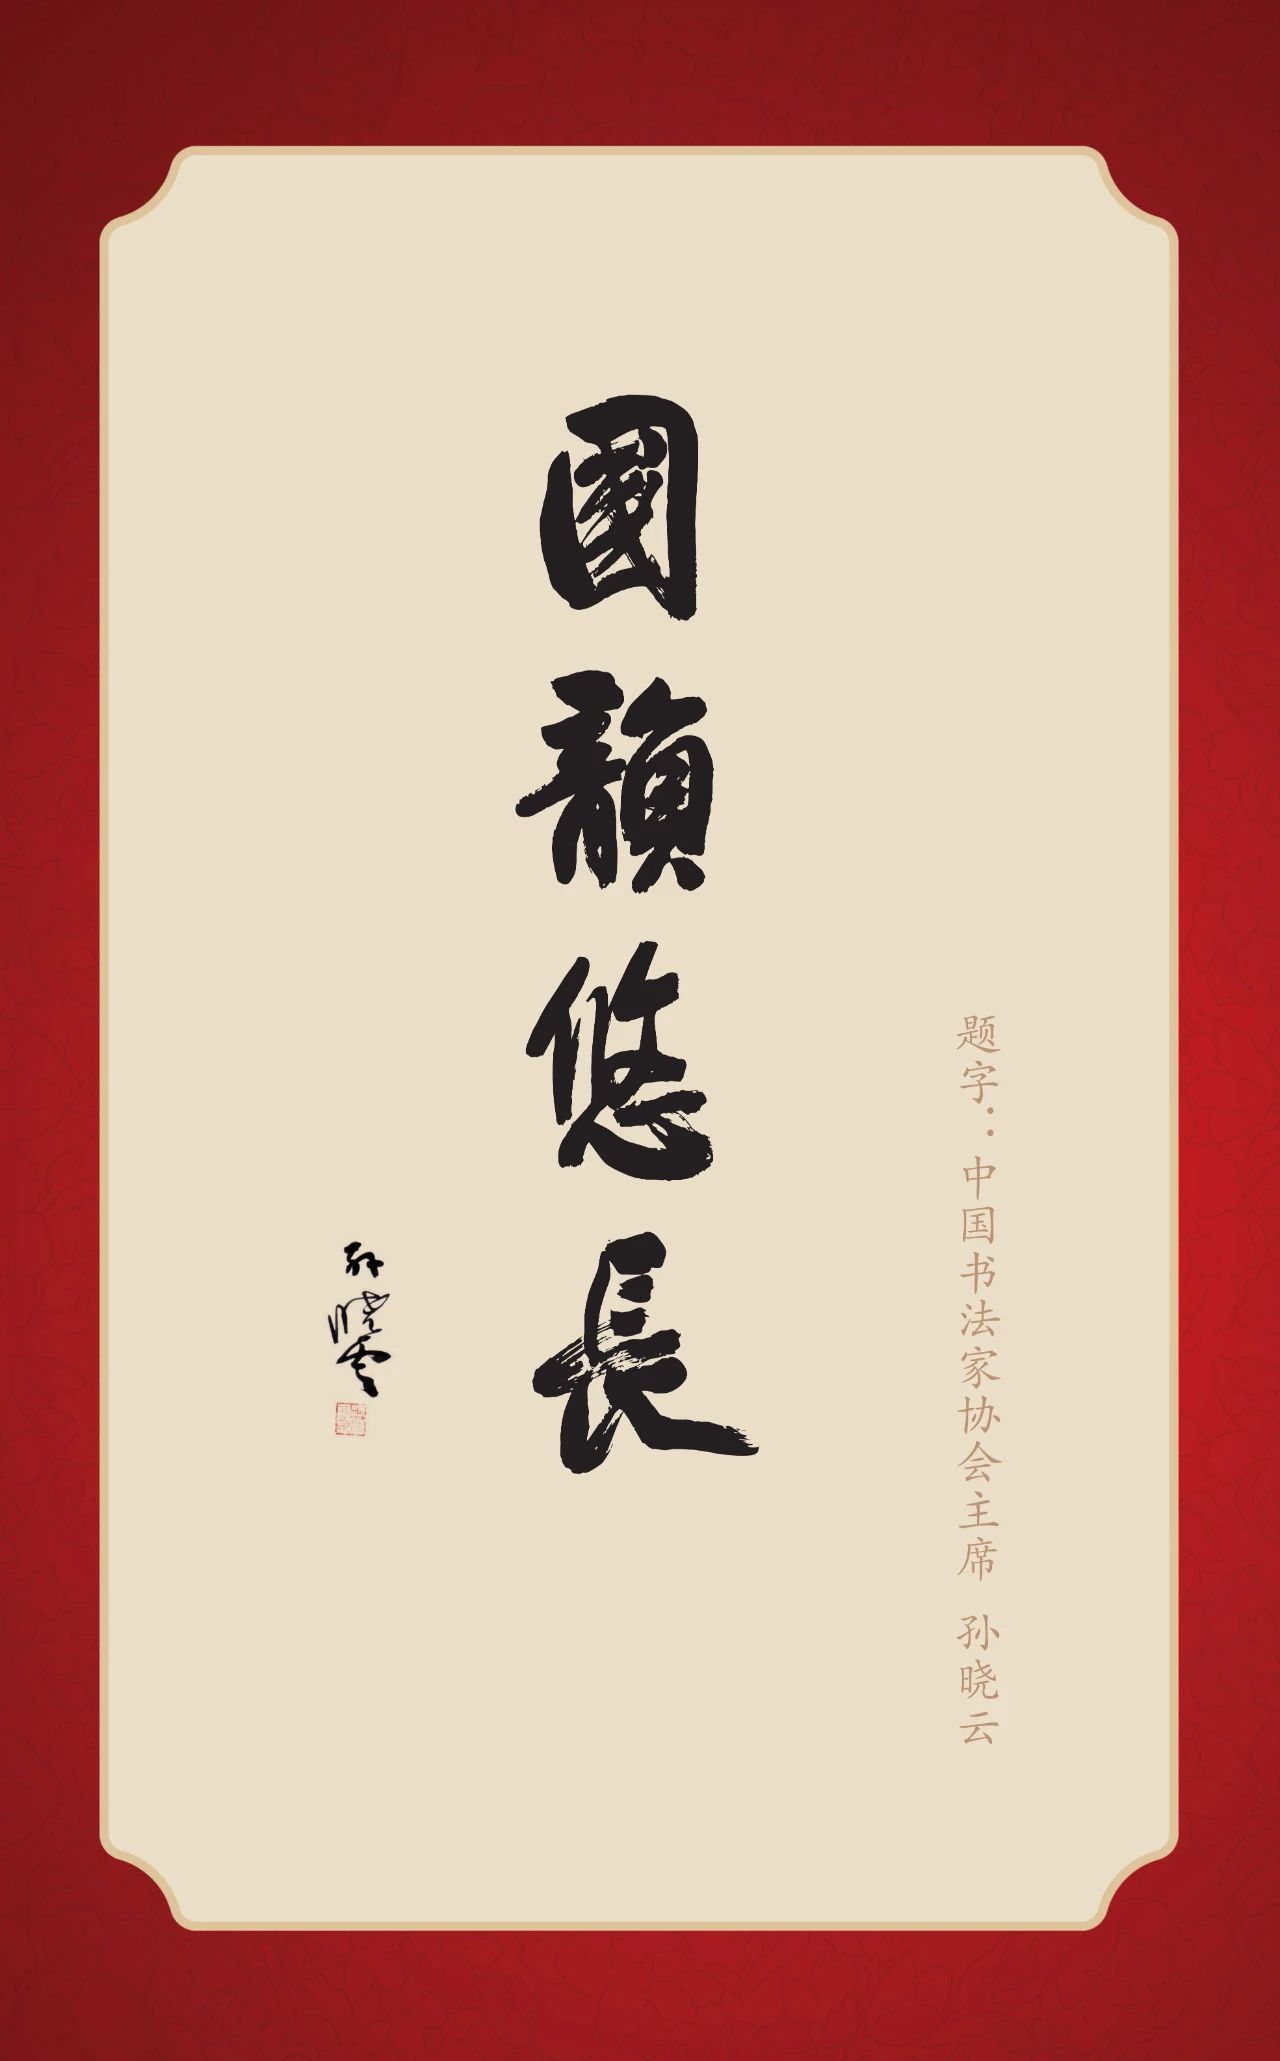 题字：中国书法家协会主席 孙晓云
國韻悠長
孙晓云